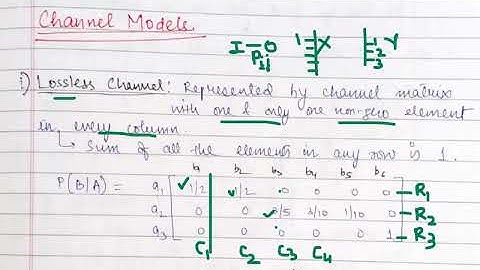 Channel Models.
I – O 1 X 1 Y
Pij 2
3
1) Lossless Channel: Represented by channel matrix
with one & only one non-zero element
in every column.
↳ Sum of all the elements in any row is 1.
b1 b2 b3 b4 b5 b6
P(B/A) = a1 1/2 1/2 0 0 0 0 – R1
a2 0 0 3/5 3/10 1/10 0 – R2
a3 0 0 0 0 0 1 – R3
C1 C2 C3 C4